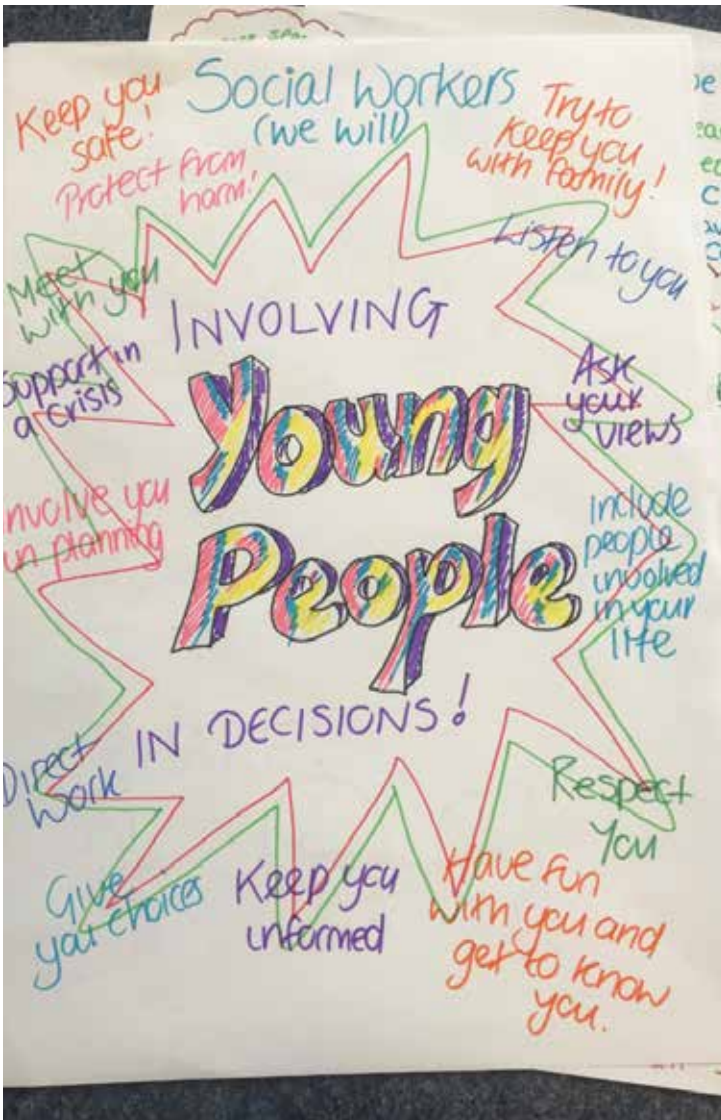 Social Workers
(we will)
Keep you
safe!
Protect from
harm!
Try to
keep you
with family!
Listen to you
Meet
with you
INVOLVING
Support in
a crisis
Young
People
Ask
your
views
Involve you
in planning
include
people
involved
in your
life
IN DECISIONS!
Direct
Work
Respect
You
Give
you choices
Keep you
informed
Have fun
with you and
get to know
you.